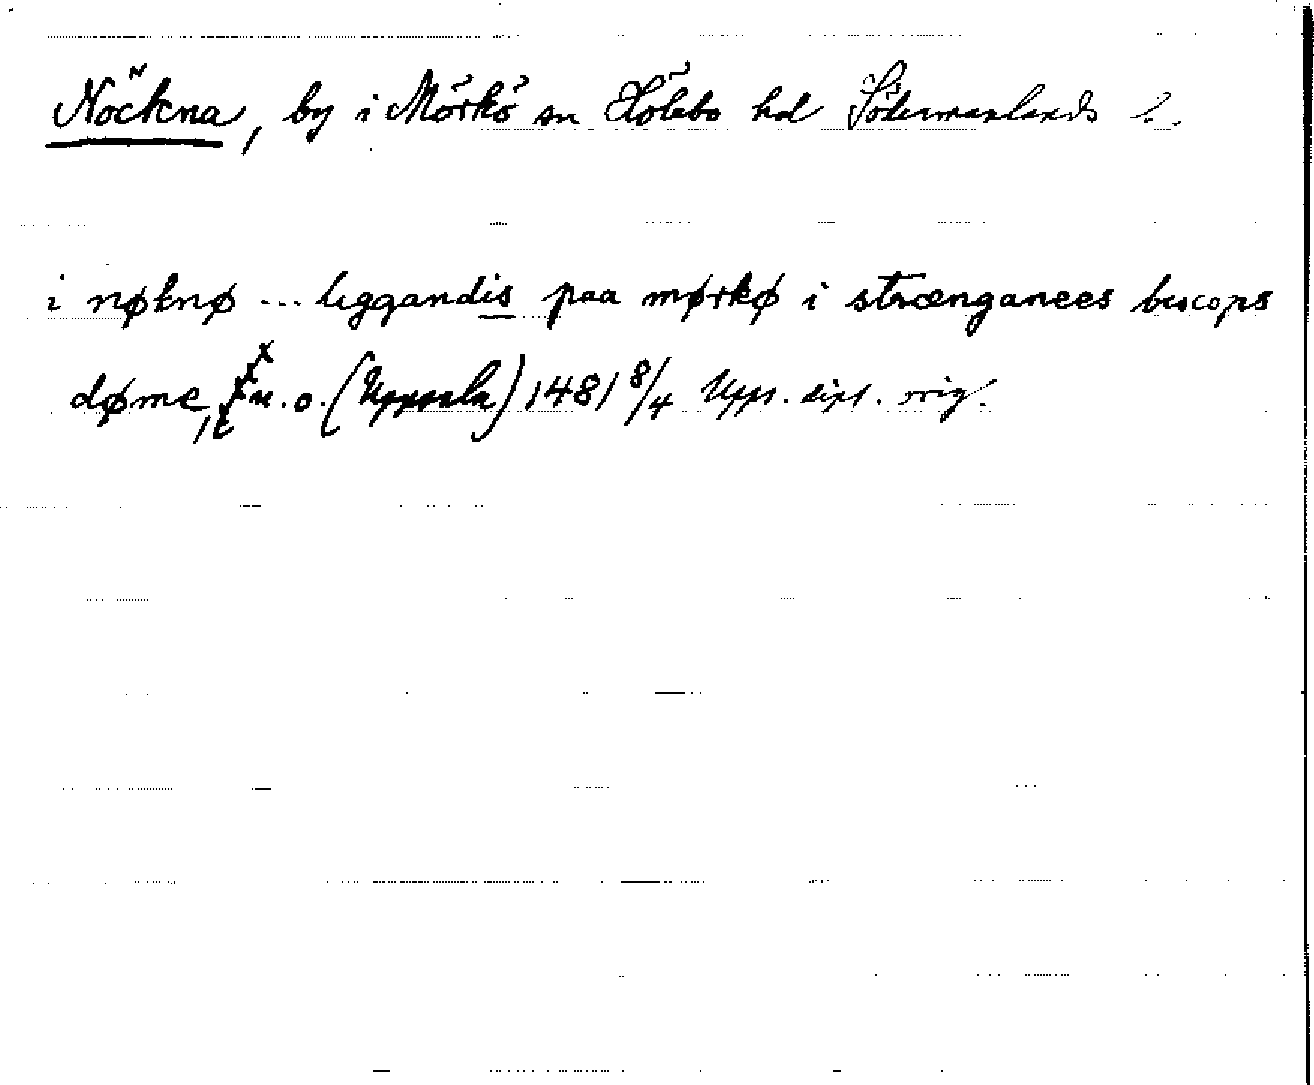 Nöckna, by i Mörkö sn Hölebo hd Södermanlands l.
i nøknø ... liggandis paa mørkø i strænganees biscops
døme, u. o. (Uppsala) 1481 8/4 Upps. dipl. orig.